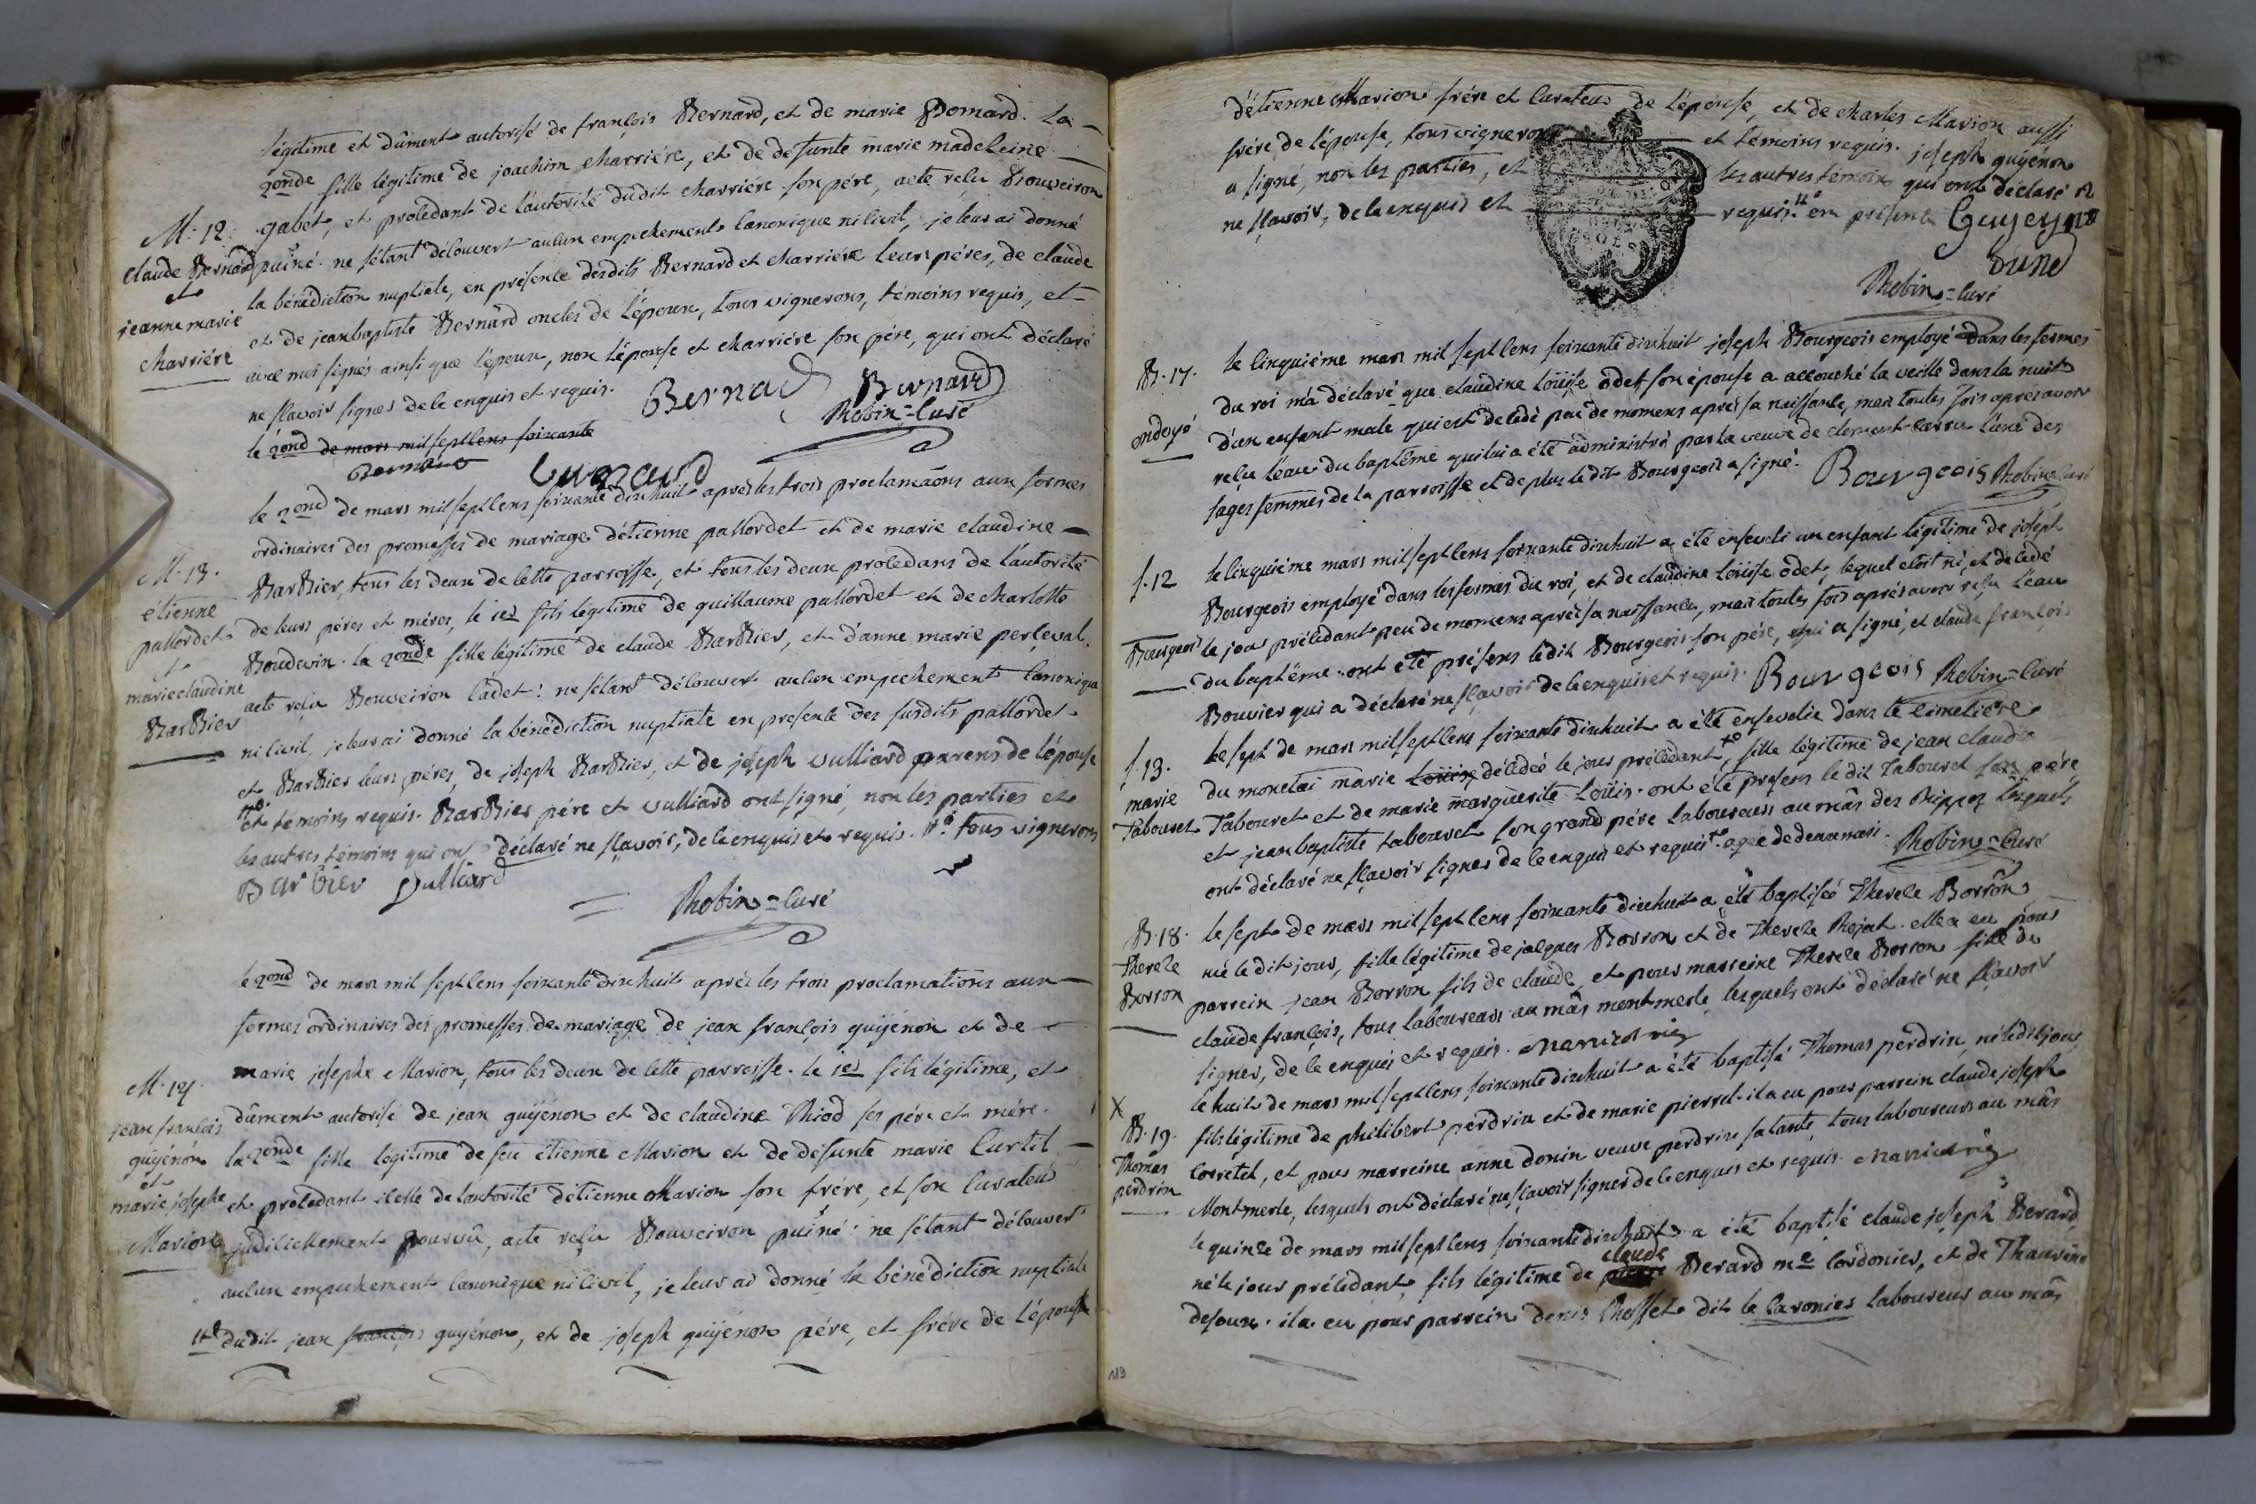 légitime et dûment autorisé de françois Bernard, et de marie Pomard. La
2onde fille légitime de joachim charriére, et de defunte marie madeleine
gabet, et procedant de l'autorité dudit charriére son pére, acte reçu Bouveiron
M. 12.
claude Bernard
et
jeanne marie
charriére
puîné. ne s'étant découvert aucun empechement canonique ni civil, je leur ai donné
la bénédiction nuptiale, en présence desdits Bernard et charriére leurs péres, de claude
et de jean baptiste Bernard oncles de l'époux, tous vignerons, témoins requis, et
avec moi signés ainsi que l'époux, non l'épouse et charriére son pére, qui ont déclaré
ne sçavoir signer de ce enquis et requis. Bernard Bernard
Robin=Curé
le 2ond de mars mil sept cens soixante
Bernard
le 2ond de mars mil sept cens soixante dixhuit après les trois proclamãons aux formes
ordinaires des promesses de mariage d'étienne pallordet et de marie claudine
M. 13.
étienne
pallordet
et
marie claudine
BarBier
BarBier, tous les deux de cette parroisse, et tous les deux procedans de l'autorité
de leurs péres et méres, le 1er fils légitime de guillaume pallordet et de charlotte
Boudevin. la 2onde fille légitime de claude BarBier, et d'anne marie perceval.
acte reçu Bouveiron cadet: ne s'étant découvert aucun empechement canonique
ni civil, je leur ai donné la bénédiction nuptiale en presence des susdits pallordet
et BarBier leurs péres, de joseph BarBier, et de joseph vulliard parens de l'épouse
et témoins requis. BarBier pére et vulliard ont signé, non les parties et
les autres témoins qui ont déclaré ne sçavoir, de ce enquis et requis. tous vignerons
Barbier vulliard
Robin=Curé
le 2ond de mars mil sept cens soixante dixhuit après les trois proclamations aux
formes ordinaires des promesses de mariage de jean françois guyénon et de
marie josephe Marion, tous les deux de cette parroisse. le 1er fils légitime, et
M. 14.
jean françois
guyénon
et
marie josephe
Marion
dûment autorisé de jean guyénon et de claudine Thiod ses pére et mére.
la 2onde fille légitime de feu étienne Marion et de defunte marie Curtil
et procedant icelle de l'autorité d'étienne Marion son frére, et son Curateur
judiciellement pourvû, acte reçu Bouveiron puîné. ne s'étant découvert
aucun empechement canonique ni civil, je leur ai donné la bénédiction nuptiale
dudit jean françois guyénon, et de joseph guyénon pére, et frére de l'époux
d'étienne Marion frére et Curateur de l'épouse, et de charles Marion aussi
frére de l'épouse, tous vignerons et témoins requis. joseph guyénon
a signé, non les parties, et les autres témoins qui ont déclaré
ne sçavoir, de ce enquis et requis. en présence Guyeynon
Robin=Curé
B. 17.
ondoyé
le cinquiéme mars mil sept cens soixante dixhuit joseph Bourgeois employé dans les fermes
du roi m'a déclaré que claudine Loüise odet son épouse a accouché la veille dans la nuit
d'un enfant male qui est décédé peu de momens après sa naissance, mais toutes fois après avoir
reçu l'eau du baptême qui lui a été administré par la veuve de clement l'une des
sages femmes de la parroisse et de plus ledit Bourgeois a signé. Bourgeois Robin=Curé
S. 12
Bourgeois
le cinquiéme mars mil sept cens soixante dixhuit a été enseveli un enfant légitime de joseph
Bourgeois employé dans les fermes du roi, et de claudine Loüise odet, lequel etoit né, et décédé
le jour précédant peu de momens après sa naissance, mais toutes fois après avoir reçu l'eau
du baptême. ont été présens ledit Bourgeois son pére, qui a signé, et claude françois
Bouvier qui a déclaré ne sçavoir de ce enquis et requis. Bourgeois Robin=Curé
S. 13.
marie
Tabouret
le sept de mars mil sept cens soixante dixhuit a été ensevelie dans le cimetiére
du monetai marie Loüise décédée le jour précédant, fille légitime de jean claude
Tabouret et de marie marguerite Loüis. ont été presens ledit Tabouret son pére
et jean baptiste tabouret son grand pére laboureurs au mâs des Rippes lesquels
ont déclaré ne sçavoir signer de ce enquis et requis. agée de deux mois. Robin=Curé
B. 18.
Therese
Borron
le sept de mars mil sept cens soixante dixhuit a été baptisée Therese Borron
née ledit jour, fille légitime de jacques Borron et de Therese Rojat. elle a eu pour
parrein jean Borron fils de claude, et pour marreine Therese Borron fille de
claude françois, tous laboureurs au mâs montmerle lesquels ont déclaré ne sçavoir
signer, de ce enquis et requis.
X
B. 19.
Thomas
perdrix
le huit de mars mil sept cens soixante dixhuit a été baptisé Thomas perdrix, né ledit jour,
fils légitime de philibert perdrix et de marie pierrel. il a eu pour parrein claude joseph
Corretel, et pour marreine anne donin veuve perdrix sa tante, tous laboureurs au mâs
Montmerle, lesquels ont déclaré ne sçavoir signer de ce enquis et requis.
le quinze de mars mil sept cens soixante dixhuit a été baptisé claude joseph Berard
né le jour précédant, fils légitime de claude Berard me Cordonier, et de
defoux. il a eu pour parrein denis Rosset dit le Caronier laboureur au mâs
113